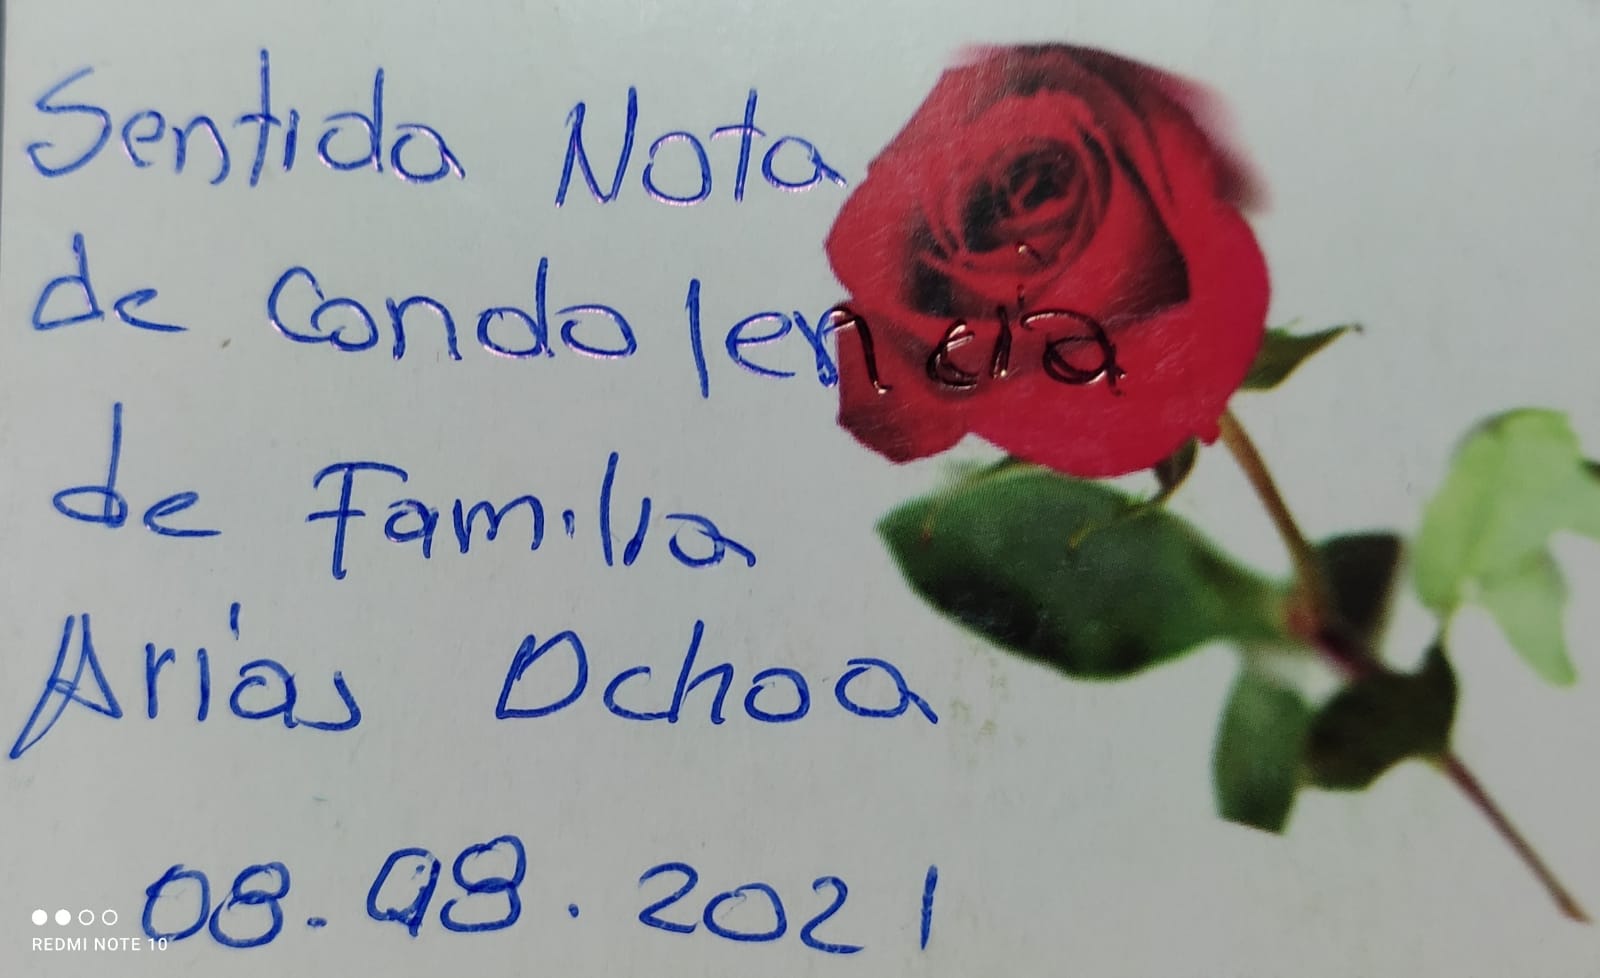 Sentida Nota
de Condolencia
de Familia
Arias Ochoa
08.08.2021
REDMI NOTE 10